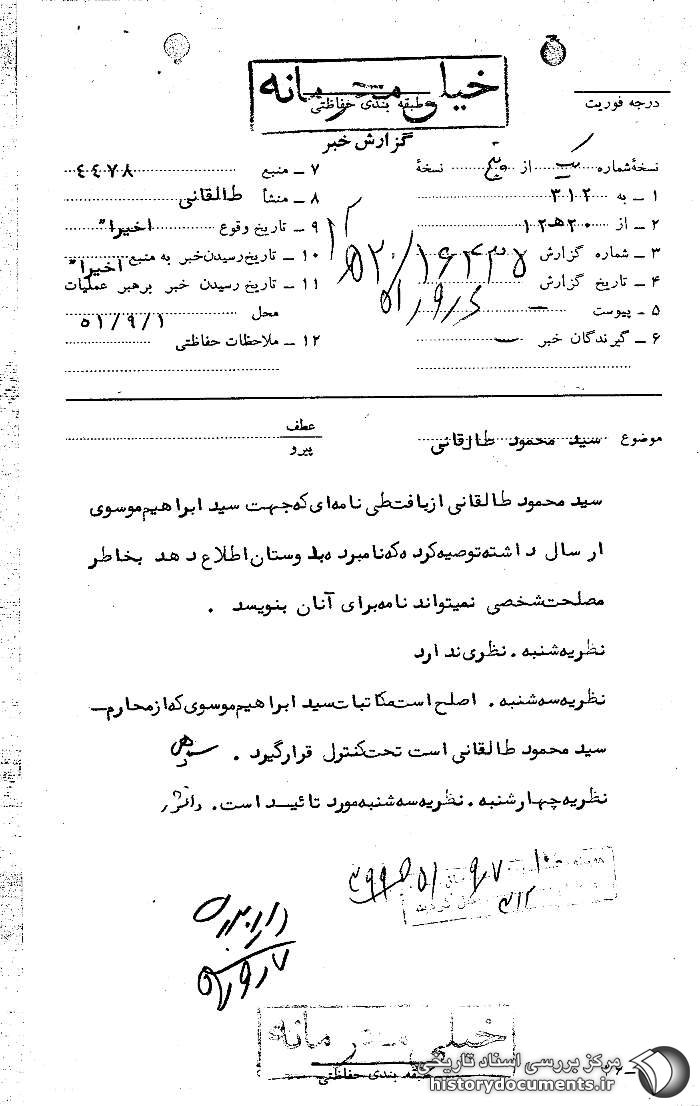 خیلی محرمانه
طبقه بندی حفاظتی
درجه فوریت
گزارش خبر
نسخهٔ شماره یک از پنج نسخهٔ
۱ – به ۳۱۲
۲ – از ۲۰ هـ ۱۲
۳ – شماره گزارش
۴ – تاریخ گزارش
۵ – پیوست –
۶ – گیرندگان خبر –
۷ – منبع ۴۴۷۸
۸ – منشأ طالقانی
۹ – تاریخ وقوع اخیرا"
۱۰ – تاریخ رسیدن خبر به منبع اخیرا"
۱۱ – تاریخ رسیدن خبر برهبر عملیات
محل ۵۱/۹/۱
۱۲ – ملاحظات حفاظتی
موضوع سید محمود طالقانی
عطف
پیرو
سید محمود طالقانی ازبافت طی نامه ای که جهت سید ابراهیم موسوی
ارسال داشته توصیه کرده که نامبرده بدوستان اطلاع دهد بخاطر
مصلحت شخصی نمیتواند نامه برای آنان بنویسد .
نظریه شنبه . نظری ندارد
نظریه سه شنبه . اصلح است مکاتبات سید ابراهیم موسوی که از محارم –
سید محمود طالقانی است تحت کنترل قرارگیرد .
نظریه چهارشنبه . نظریه سه شنبه مورد تائید است .
۳۱۲
خیلی محرمانه
طبقه بندی حفاظتی
مرکز بررسی اسناد تاریخی
historydocuments.ir